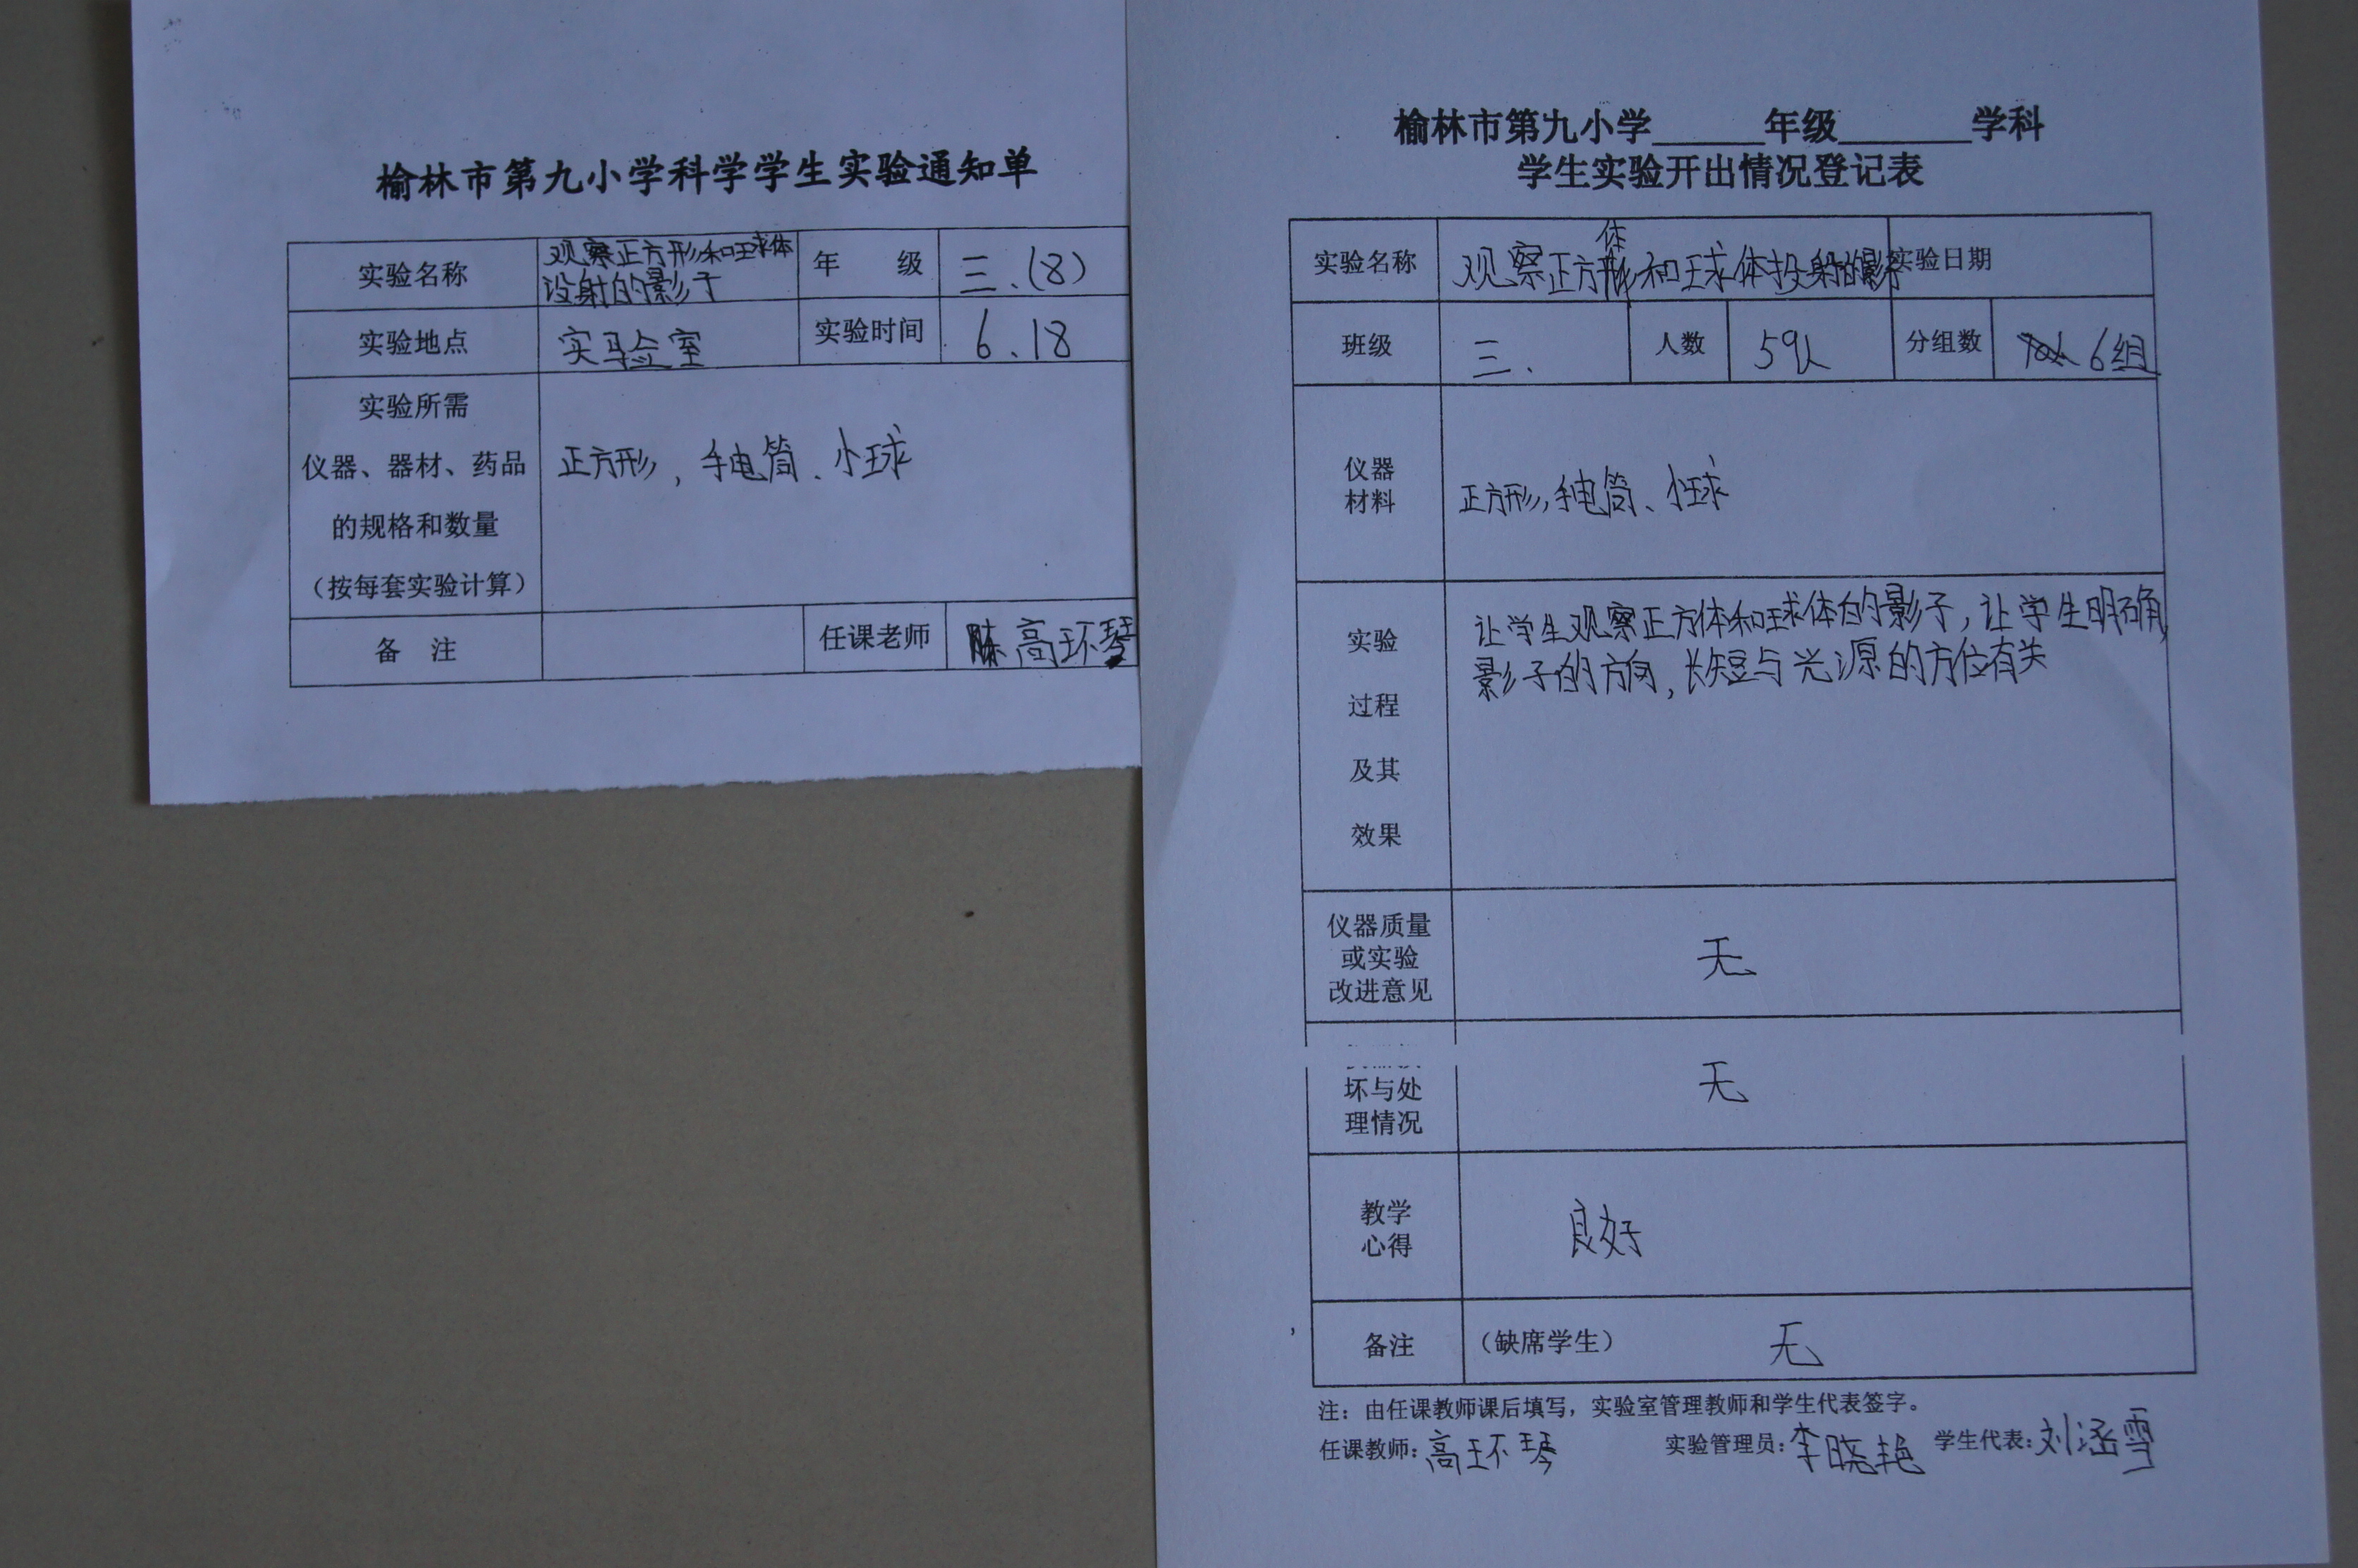 榆林市第九小学科学学生实验通知单
实验名称 观察正方形和球体 年 级 三.(8)
投射的影子
实验地点 实验室 实验时间 6.18
实验所需
仪器、器材、药品 正方形，手电筒、小球
的规格和数量
（按每套实验计算）
备 注 任课老师 高环琴
榆林市第九小学______年级_______学科
学生实验开出情况登记表
实验名称 观察正方体和球体投射的影子 实验日期
班级 三. 人数 59人 分组数 6组
仪器
材料 正方形，手电筒、小球
实验 让学生观察正方体和球体的影子，让学生明确
影子的方向，长短与光源的方位有关
过程
及其
效果
仪器质量
或实验 无
改进意见
坏与处 无
理情况
教学 良好
心得
备注 （缺席学生） 无
注：由任课教师课后填写，实验室管理教师和学生代表签字。
任课教师：高环琴 实验管理员：李晓艳 学生代表：刘涵雪